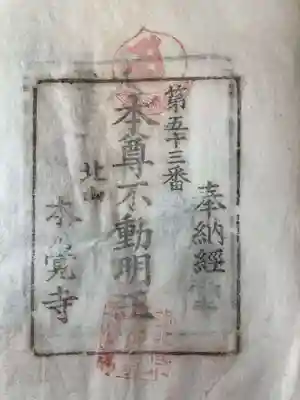 奉納経
第五十三番
本尊不動明王
北山
本覚寺